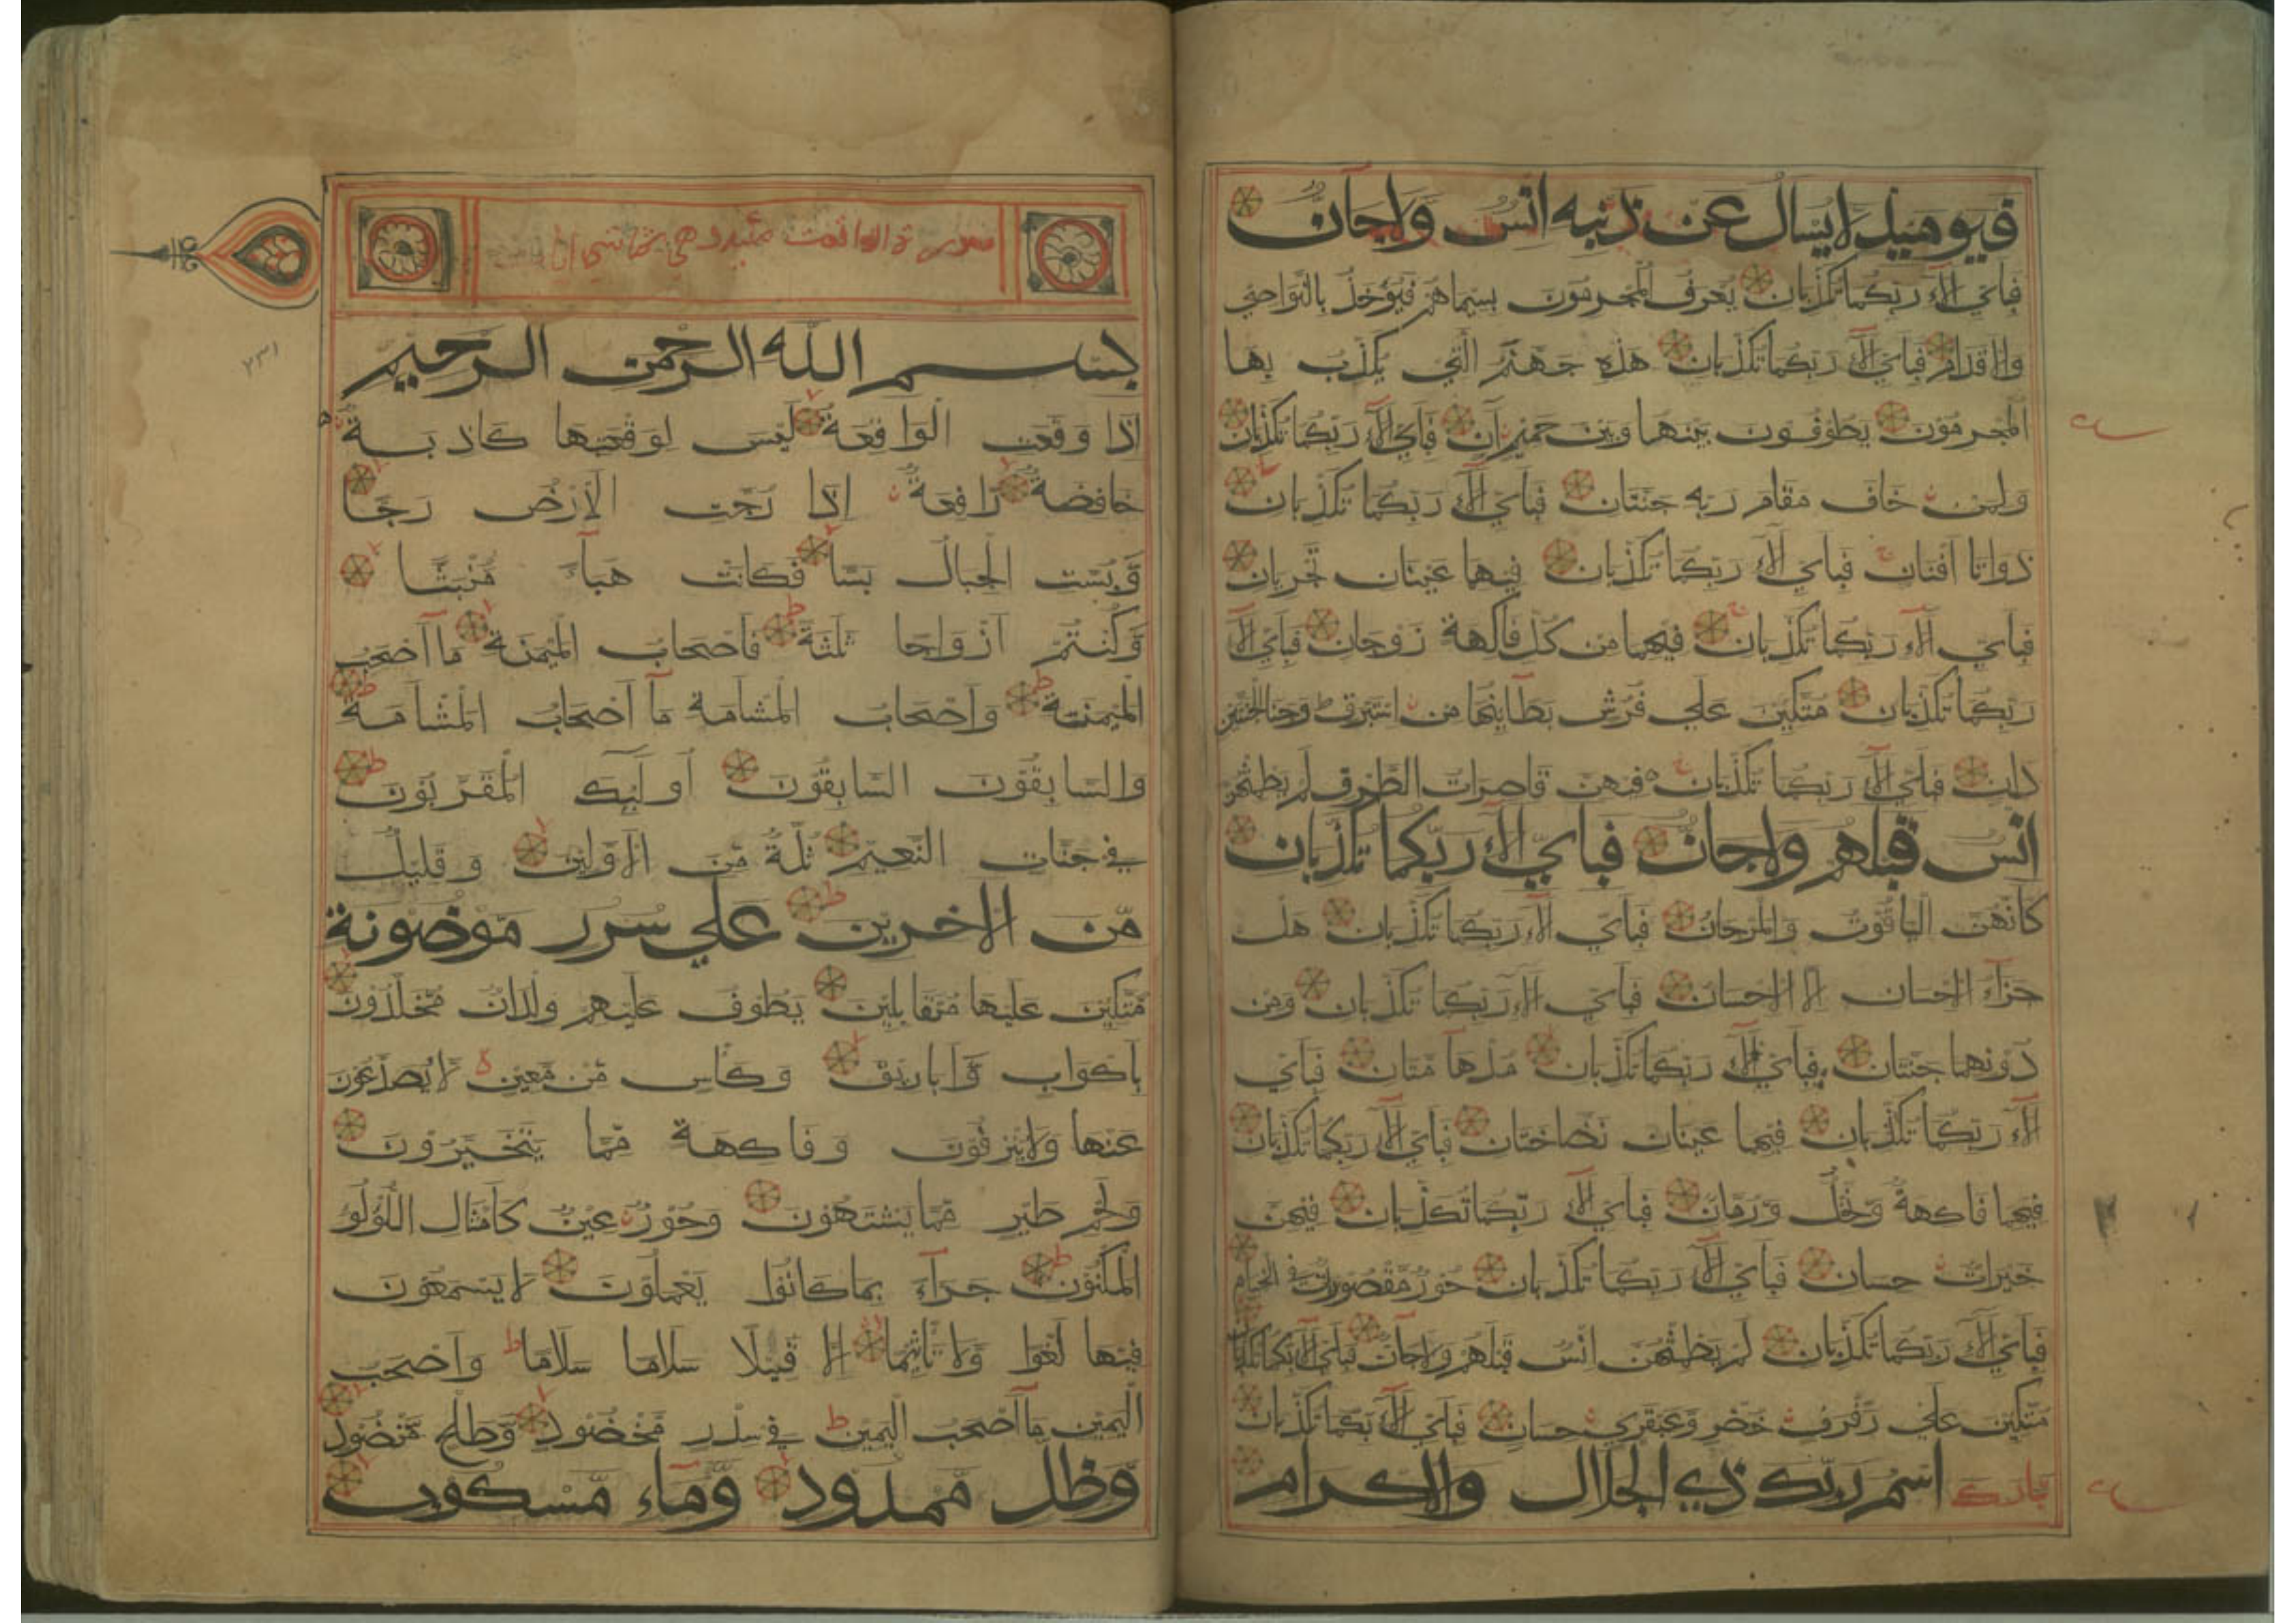 فيوميذ لا يسال عن ذنبه انس ولا جان
فباي الآء ربكما تكذبان يعرف المجرمون بسيماهم فيوخذ بالنواصي
والاقدام فباي الآء ربكما تكذبان هذه جهنم التي يكذب بها
المجرمون يطوفون بينها وبين حميم آن فباي الآء ربكما تكذبان
ولمن خاف مقام ربه جنتان فباي الآء ربكما تكذبان
ذواتا افنان فباي الآء ربكما تكذبان فيهما عينان تجريان
فباي الآء ربكما تكذبان فيهما من كل فاكهة زوجان فباي الآء
ربكما تكذبان متكين علي فرش بطآينها من استبرق وجنا الجنتين
دان فباي الآء ربكما تكذبان فيهن قاصرات الطرف لم يطمثهن
انس قبلهم ولا جان فباي الآء ربكما تكذبان
كانهن الياقوت والمرجان فباي الآء ربكما تكذبان هل
جزآء الاحسان الا الاحسان فباي الآء ربكما تكذبان ومن
دونهما جنتان فباي الآء ربكما تكذبان مدهآ متان فباي
الآء ربكما تكذبان فيهما عينان نضاختان فباي الآء ربكما تكذبان
فيهما فاكهة ونخل ورمان فباي الآء ربكما تكذبان فيهن
خيرات حسان فباي الآء ربكما تكذبان حور مقصورات في الخيام
فباي الآء ربكما تكذبان لم يطمثهن انس قبلهم ولا جآن فباي الآء ربكما تكذبان
متكين علي رفرف خضر وعبقري حسان فباي الآء ربكما تكذبان
تبارك اسم ربك ذي الجلال والاكرام
سورة الواقعت
بسم الله الرحمن الرحيم
اذا وقعت الواقعة ليس لوقعتها كاذبة
خافضة رافعة اذا رجت الارض رجا
وبست الجبال بسا فكانت هبآء منبثا
وكنتم ازواجا ثلثة فاصحاب الميمنة مآ اصحب
الميمنة واصحاب المشامة مآ اصحاب المشامة
والسابقون السابقون اولٓيك المقربون
في جنات النعيم ثلة من الاولين وقليل
من الاخرين علي سرر موضونة
متكين عليها متقابلين يطوف عليهم ولدان مخلدون
باكواب واباريق وكاس من معين لا يصدعون
عنها ولا ينزفون وفاكهة مما يتخيرون
ولحم طير مما يشتهون وحور عين كامثال اللولو
المكنون جزآء بما كانوا يعملون لا يسمعون
فيها لغوا ولا تاثيما الا قيلا سلاما سلاما واصحب
اليمين مآ اصحب اليمين في سدر مخضود وطلح منضود
وظل ممدود ومآء مسكوب
٢٣١